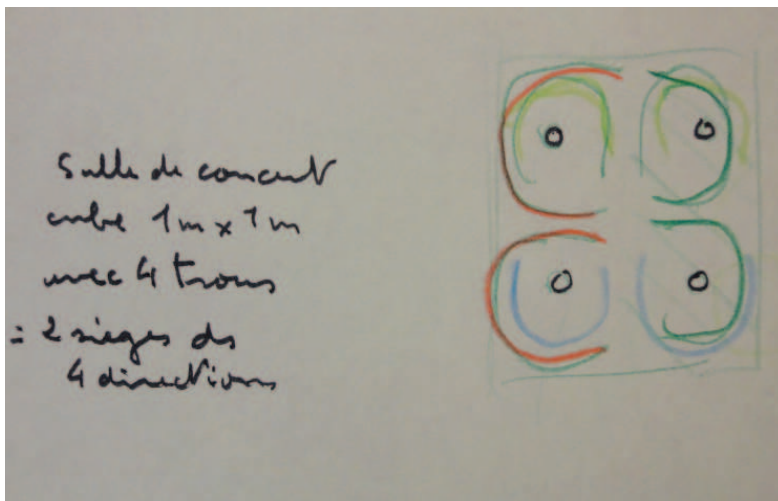 Salle de concert
cube 1m x 1m
avec 4 trous
= 2 sièges ds
4 directions